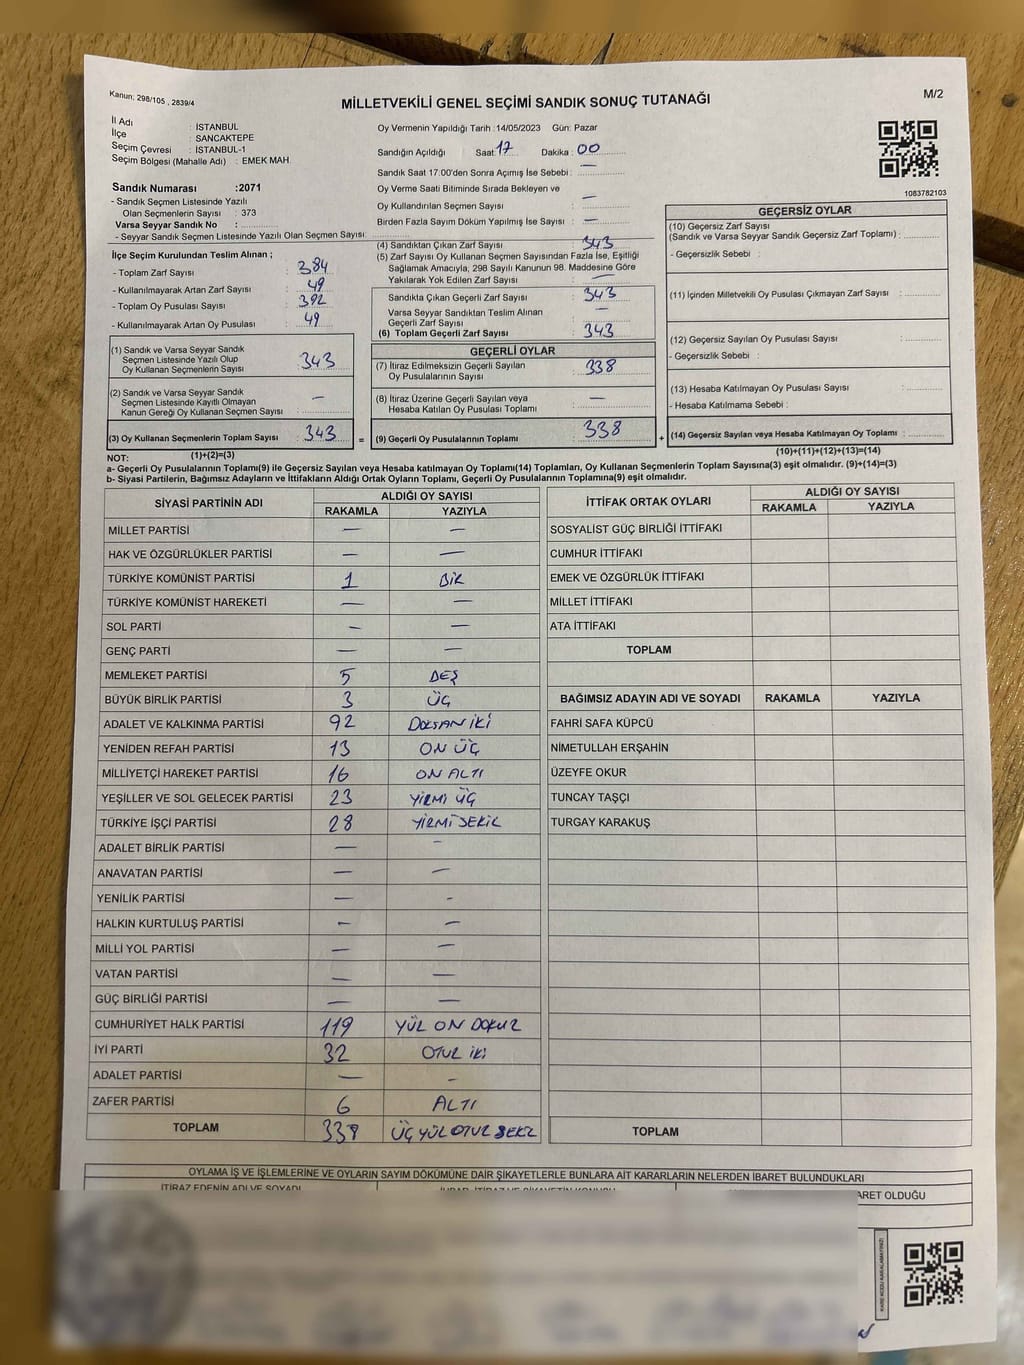 Kanun: 298/105 , 2839/4
MİLLETVEKİLİ GENEL SEÇİMİ SANDIK SONUÇ TUTANAĞI
M/2
İl Adı : İSTANBUL
İlçe : SANCAKTEPE
Seçim Çevresi : İSTANBUL-1
Seçim Bölgesi (Mahalle Adı) : EMEK MAH.
Sandık Numarası :2071
- Sandık Seçmen Listesinde Yazılı
Olan Seçmenlerin Sayısı : 373
Varsa Seyyar Sandık No :
- Seyyar Sandık Seçmen Listesinde Yazılı Olan Seçmen Sayısı:
İlçe Seçim Kurulundan Teslim Alınan ;
- Toplam Zarf Sayısı : 384
- Kullanılmayarak Artan Zarf Sayısı : 49
- Toplam Oy Pusulası Sayısı : 392
- Kullanılmayarak Artan Oy Pusulası : 49
(1) Sandık ve Varsa Seyyar Sandık
Seçmen Listesinde Yazılı Olup
Oy Kullanan Seçmenlerin Sayısı : 343
(2) Sandık ve Varsa Seyyar Sandık
Seçmen Listesinde Kayıtlı Olmayan
Kanun Gereği Oy Kullanan Seçmen Sayısı : —
(3) Oy Kullanan Seçmenlerin Toplam Sayısı : 343
(1)+(2)=(3)
Oy Vermenin Yapıldığı Tarih :14/05/2023 Gün: Pazar
Sandığın Açıldığı Saat: 17 Dakika : 00
Sandık Saat 17.00'den Sonra Açımış İse Sebebi : —
Oy Verme Saati Bitiminde Sırada Bekleyen ve
Oy Kullandırılan Seçmen Sayısı : —
Birden Fazla Sayım Döküm Yapılmış İse Sayısı : —
(4) Sandıktan Çıkan Zarf Sayısı : 343
(5) Zarf Sayısı Oy Kullanan Seçmen Sayısından Fazla İse, Eşitliği
Sağlamak Amacıyla, 298 Sayılı Kanunun 98. Maddesine Göre
Yakılarak Yok Edilen Zarf Sayısı : —
Sandıkta Çıkan Geçerli Zarf Sayısı : 343
Varsa Seyyar Sandıktan Teslim Alınan
Geçerli Zarf Sayısı : —
(6) Toplam Geçerli Zarf Sayısı : 343
GEÇERLİ OYLAR
(7) İtiraz Edilmeksizin Geçerli Sayılan
Oy Pusulalarının Sayısı : 338
(8) İtiraz Üzerine Geçerli Sayılan veya
Hesaba Katılan Oy Pusulası Toplamı : —
= (9) Geçerli Oy Pusulalarının Toplamı : 338 +
1083782103
GEÇERSİZ OYLAR
(10) Geçersiz Zarf Sayısı
(Sandık ve Varsa Seyyar Sandık Geçersiz Zarf Toplamı) :
- Geçersizlik Sebebi :
(11) İçinden Milletvekili Oy Pusulası Çıkmayan Zarf Sayısı :
(12) Geçersiz Sayılan Oy Pusulası Sayısı :
- Geçersizlik Sebebi :
(13) Hesaba Katılmayan Oy Pusulası Sayısı :
- Hesaba Katılmama Sebebi :
(14) Geçersiz Sayılan veya Hesaba Katılmayan Oy Toplamı :
(10)+(11)+(12)+(13)=(14)
NOT:
a- Geçerli Oy Pusulalarının Toplamı(9) ile Geçersiz Sayılan veya Hesaba katılmayan Oy Toplamı(14) Toplamları, Oy Kullanan Seçmenlerin Toplam Sayısına(3) eşit olmalıdır. (9)+(14)=(3)
b- Siyasi Partilerin, Bağımsız Adayların ve İttifakların Aldığı Ortak Oyların Toplamı, Geçerli Oy Pusulalarının Toplamına(9) eşit olmalıdır.
SİYASİ PARTİNİN ADI ALDIĞI OY SAYISI
RAKAMLA YAZIYLA
MİLLET PARTİSİ — —
HAK VE ÖZGÜRLÜKLER PARTİSİ — —
TÜRKİYE KOMÜNİST PARTİSİ 1 BİR
TÜRKİYE KOMÜNİST HAREKETİ — —
SOL PARTİ — —
GENÇ PARTİ — —
MEMLEKET PARTİSİ 5 BEŞ
BÜYÜK BİRLİK PARTİSİ 3 ÜÇ
ADALET VE KALKINMA PARTİSİ 92 DOKSAN İKİ
YENİDEN REFAH PARTİSİ 13 ON ÜÇ
MİLLİYETÇİ HAREKET PARTİSİ 16 ON ALTI
YEŞİLLER VE SOL GELECEK PARTİSİ 23 YİRMİ ÜÇ
TÜRKİYE İŞÇİ PARTİSİ 28 YİRMİ SEKİZ
ADALET BİRLİK PARTİSİ — -
ANAVATAN PARTİSİ — —
YENİLİK PARTİSİ — -
HALKIN KURTULUŞ PARTİSİ - —
MİLLİ YOL PARTİSİ — —
VATAN PARTİSİ — —
GÜÇ BİRLİĞİ PARTİSİ — —
CUMHURİYET HALK PARTİSİ 119 YÜZ ON DOKUZ
İYİ PARTİ 32 OTUZ İKİ
ADALET PARTİSİ — -
ZAFER PARTİSİ 6 ALTI
TOPLAM 338 ÜÇ YÜZ OTUZ SEKİZ
İTTİFAK ORTAK OYLARI ALDIĞI OY SAYISI
RAKAMLA YAZIYLA
SOSYALİST GÜÇ BİRLİĞİ İTTİFAKI
CUMHUR İTTİFAKI
EMEK VE ÖZGÜRLÜK İTTİFAKI
MİLLET İTTİFAKI
ATA İTTİFAKI
TOPLAM
BAĞIMSIZ ADAYIN ADI VE SOYADI RAKAMLA YAZIYLA
FAHRİ SAFA KÜPCÜ
NİMETULLAH ERŞAHİN
ÜZEYFE OKUR
TUNCAY TAŞÇI
TURGAY KARAKUŞ
TOPLAM
OYLAMA İŞ VE İŞLEMLERİNE VE OYLARIN SAYIM DÖKÜMÜNE DAİR ŞİKAYETLERLE BUNLARA AİT KARARLARIN NELERDEN İBARET BULUNDUKLARI
İTİRAZ EDENİN ADI VE SOYADI
OLDUĞU